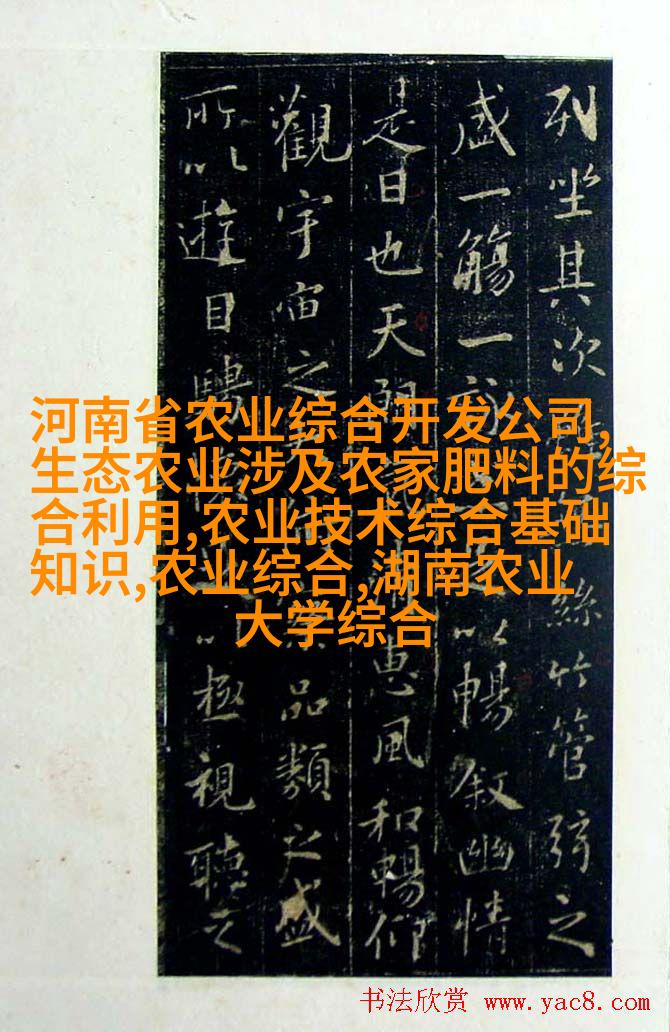 列坐其次絲竹管弦之
盛一觴一以暢叙幽情
是日也天朗惠風和暢仰
觀宇宙之品類之盛
所以遊目騁以極視聽之
河南省农业综合开发公司,
生态农业涉及农家肥料的综
合利用,农业技术综合基础
知识,农业综合,湖南农业
大学综合
书法欣赏 www.yac8.com